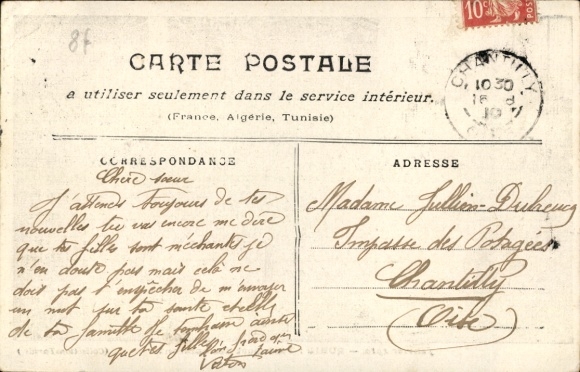 8f
10c
POSTES
CARTE POSTALE
a utiliser seulement dans le service intérieur.
(France, Algérie, Tunisie)
CHANTILLY
10 30
10
CORRESPONDANCE
ADRESSE
Chère sœur
J'attends toujours de tes
nouvelles tu vas encore me dire
que tes filles sont méchantes je
n'en doute pas mais cela ne
dois pas t'empêcher de m'envoyer
un mot sur ta santé et celle
de ta famille
que tes filles
t'aime
Madame Jullien-Dubecq
Impasse des Potagées
Chantilly
(Oise)